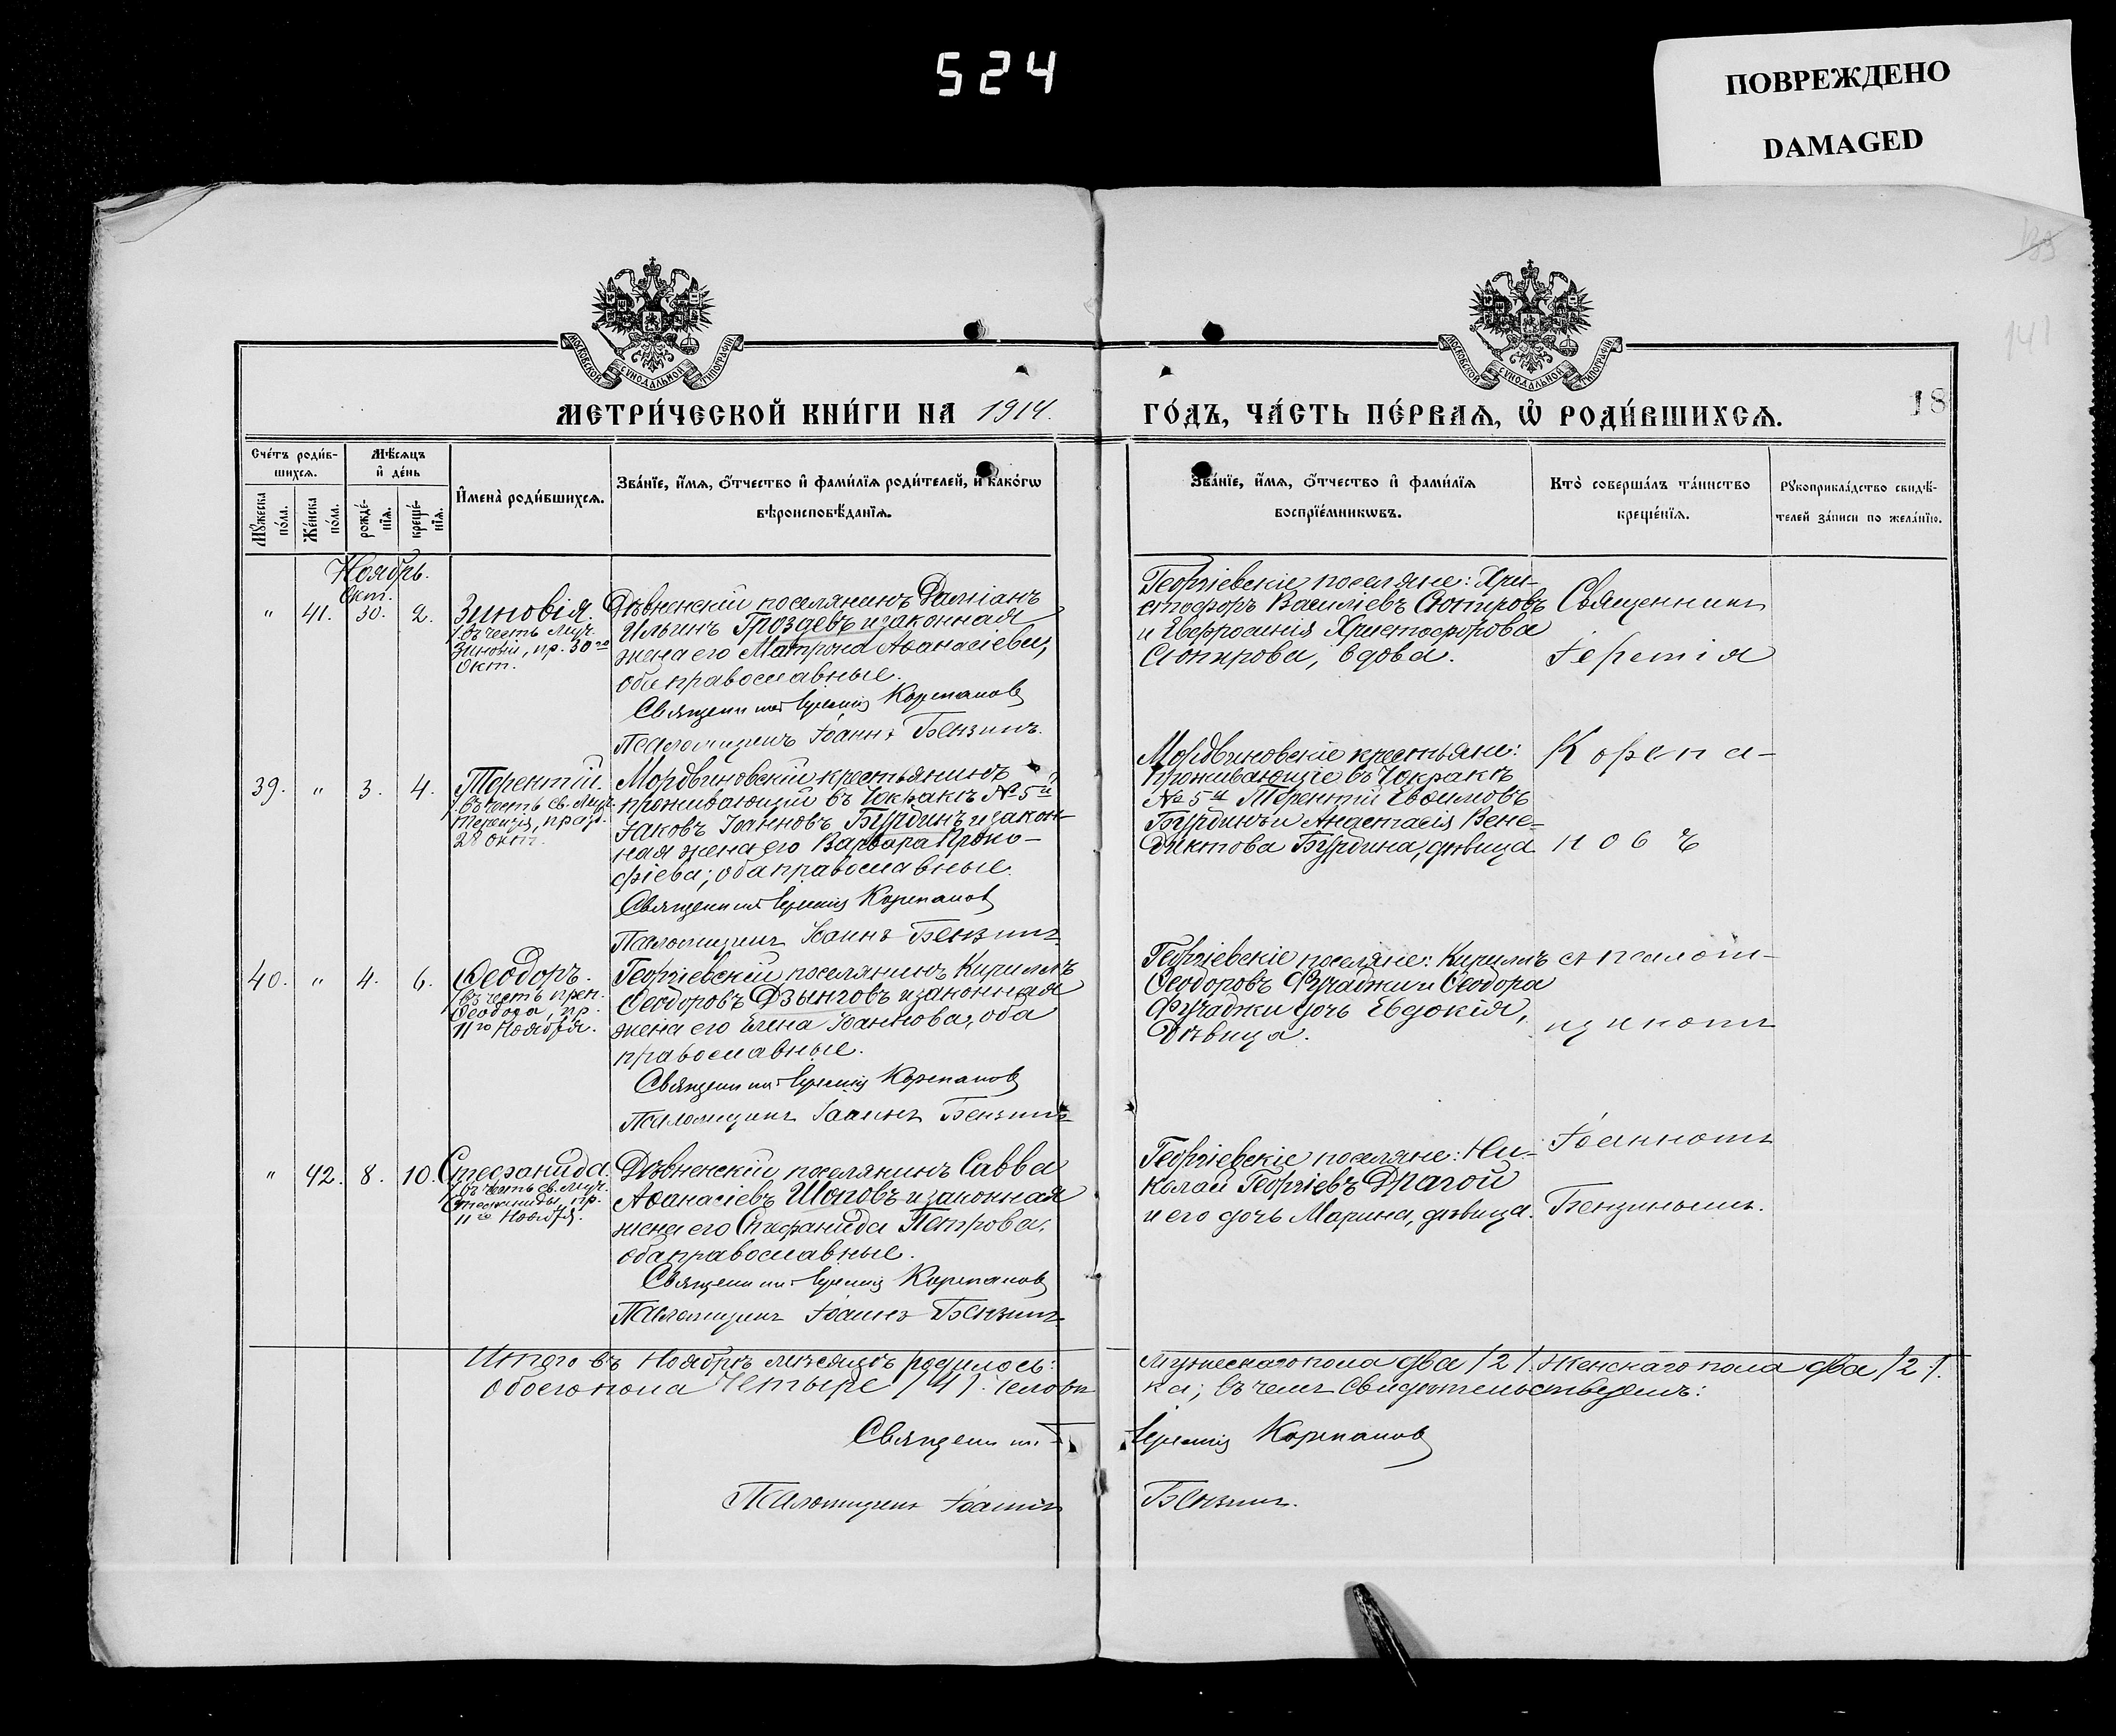 524
ПОВРЕЖДЕНО
DAMAGED
141
18
МОСКОВСКОЙ СѴНОДАЛЬНОЙ ТИПОГРАФІИ
МОСКОВСКОЙ СѴНОДАЛЬНОЙ ТИПОГРАФІИ
МЕТРИ́ЧЕСКОЙ КНИ́ГИ НА 1914.
ГО́ДЪ, ЧА́СТЬ ПЕ́РВАЯ, Ѡ РОДИ́ВШИХСЯ.
Сче́тъ роди́в-
шихся.
Мѣ́сяцъ
и де́нь
Мꙋ́жеска
по́ла.
Же́нска
по́ла.
рожде́-
нїя.
креще́-
нїя.
Имена̀ роди́вшихся.
Зва́нїе, и́мя, ѻ́тчество и фами́лїя роди́телей, и како́гѡ
вѣроисповѣ́данїя.
Зва́нїе, и́мя, ѻ́тчество и фами́лїя
воспрїе́мникѡвъ.
Кто̀ соверша́лъ та́инство
креще́нїя.
Рꙋкоприкла́дство свидѣ́-
телей за́писи по жела́нїю.
Ноябрь.
Окт.
" 41. 30. 2.
Зиновія.
въ честь муч.
Зиновіи, пр. 30го
Окт.
Дѣвненскій поселянинъ Даміанъ
Ильинъ Гроздевъ и законная
жена его Матрона Аѳанасіева,
оба православные.
Священникъ Іеремія Корепановъ
Псаломщикъ Іоаннъ Бензинъ.
Георгіевскіе поселяне: Хри-
стофоръ Василіевъ Стопировъ
и Евфросинія Христофорова
Стопирова, вдова.
Священникъ
Іеремія
Корепа-
новъ
39. " 3. 4.
Терентій.
въ честь св. муч.
Терентія, празд.
28 окт.
Мордвиновскій крестьянинъ
проживающій въ Чокракѣ № 5й
Іаковъ Іоанновъ Бурдинъ и закон-
ная жена его Варвара Проко-
фіева; оба православные.
Священникъ Іеремія Корепановъ
Псаломщикъ Іоаннъ Бензинъ
Мордвиновскіе крестьяне:
проживающіе въ Чокракѣ
№ 5й Терентій Евѳимовъ
Бурдинъ и Анастасія Вене-
диктова Бурдина, дѣвица
40. " 4. 6.
Ѳеодоръ.
въ честь преп.
Ѳеодора, пр.
11го Ноября.
Георгіевскій поселянинъ Кириллъ
Ѳеодоровъ Дзынговъ и законная
жена его Елена Іоаннова, оба
православные.
Священникъ Іеремія Корепановъ
Псаломщикъ Іоаннъ Бензинъ
Георгіевскіе поселяне: Кириллъ
Ѳеодоровъ Фучаджи и Ѳеодора
Фучаджи дочь Евдокія,
дѣвица.
съ псалом-
щикомъ
" 42. 8. 10.
Стефанида.
въ честь св. муч.
Стефаниды, пр.
11го Ноября.
Дѣвненскій поселянинъ Савва
Аѳанасіевъ Шоповъ и законная
жена его Стефанида Петрова,
оба православные.
Священникъ Іеремія Корепановъ
Псаломщикъ Іоаннъ Бензинъ
Георгіевскіе поселяне: Ни-
колай Георгіевъ Драгой
и его дочь Марина, дѣвица.
Іоанномъ
Бензинымъ.
Итого въ Ноябрѣ мѣсяцѣ родилось: мужескаго пола два /2/. женскаго пола два /2/.
обоего пола четыре /4/. человѣка; въ чемъ свидѣтельствуемъ:
Священникъ Іеремія Корепановъ
Псаломщикъ Іоаннъ Бензинъ.